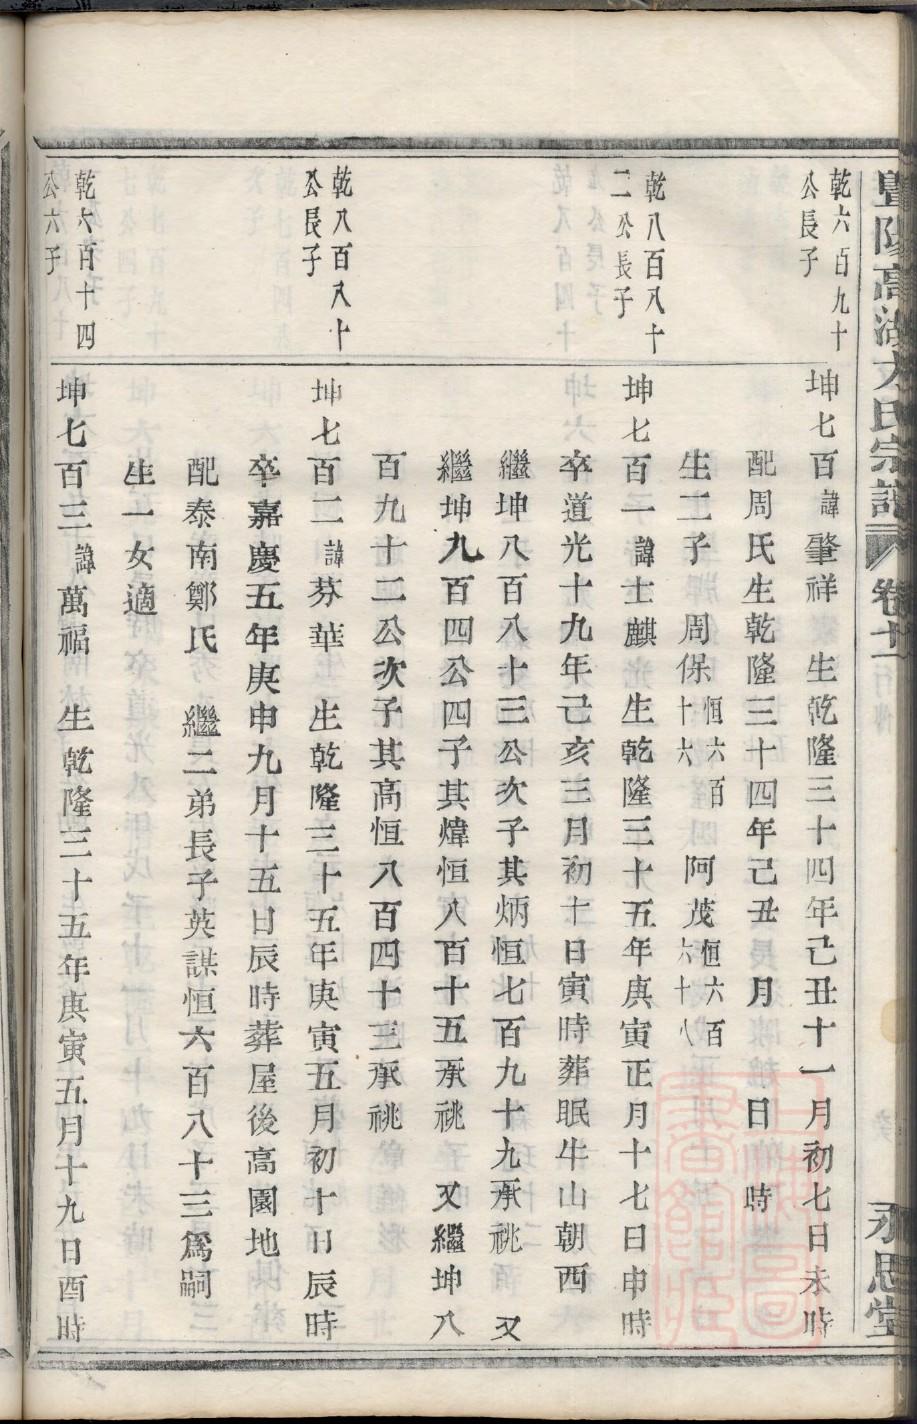 暨陽高湖方氏宗譜 卷十一 永思堂
乾六百九十
公長子
坤七百諱肇祥 生乾隆三十四年己丑十一月初七日未時
配周氏生乾隆三十四年己丑 月 日 時
生二子 周保恒六百十六 阿茂恒六百六十八
乾八百八十
二公長子
坤七百一諱士麒 生乾隆三十五年庚寅正月十七日申時
卒道光十九年己亥三月初十日寅時葬眠牛山朝西
繼坤八百八十三公次子其炳恒七百九十九承祧 又
繼坤九百四公四子其煒恒八百十五承祧 又繼坤八
百九十二公次子其高恒八百四十三承祧
乾八百八十
公長子
坤七百二諱芬華 生乾隆三十五年庚寅五月初十日辰時
卒嘉慶五年庚申九月十五日辰時葬屋後高園地
配泰南鄭氏 繼二弟長子英謀恒六百八十三為嗣
生一女適
乾六百十四
公六子
坤七百三諱萬福 生乾隆三十五年庚寅五月十九日酉時